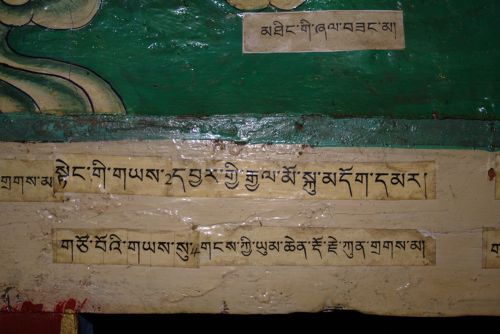 མཐིང་གི་ཞལ་བཟང་མ།
གྲགས་མ
སྟེང་གི་གཡས་༢དབྱར་གྱི་རྒྱལ་མོ་སྐུ་མདོག་དམར།
གཙོ་བོའི་གཡས་སུ༌༎གངས་ཀྱི་ཡུམ་ཆེན་རྡོ་རྗེ་ཀུན་གྲགས་མ།